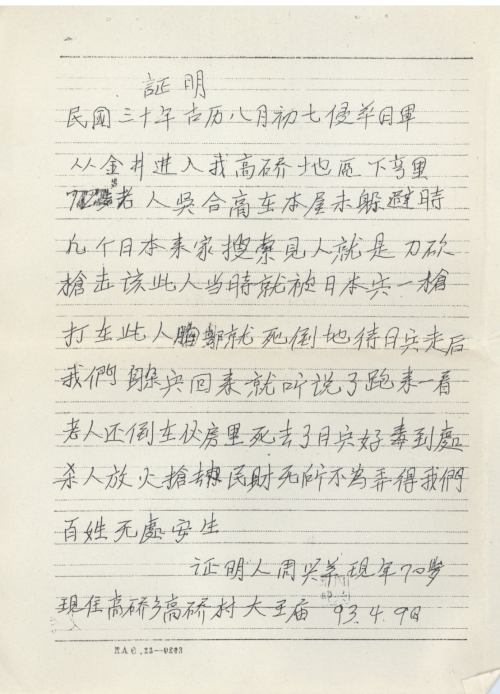 証明
民國三十年古历八月初七侵华日軍
从金井進入我高硚地區下弯里
72岁老人吳合高在本屋未躲避時
九个日本来家搜索見人就是刀砍
槍击该此人当時就被日本兵一槍
打在此人胸部就死倒地待日兵走后
我們躲兵回来就听说了跑来一看
老人还倒在伙房里死去了日兵好毒到處
杀人放火搶刼民財无所不为弄得我們
百姓无處安生
证明人周兴 现年70岁
现住高硚乡高硚村大王庙 93.4.9日
HAG.23—0203